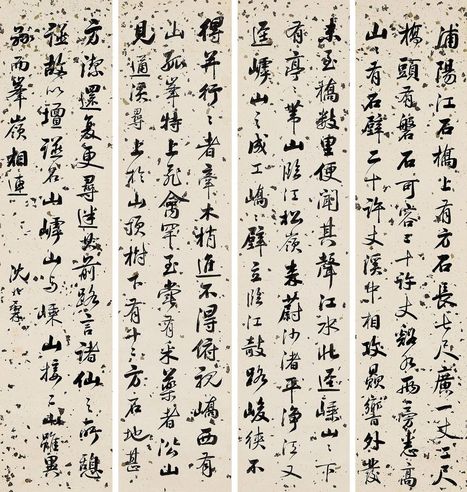 浦陽江石橋上有方石長七尺廣一丈二尺
橋頭有磐石可容二十許丈谿水兩旁悉高
山〻有石壁二十許丈溪中相攻贔響外發
未至橋數里便聞其聲江水北逕嵊山〻下
有亭〻帶山臨江松嶺森蔚沙渚平淨江又
逕嶀山〻成工嶠〻壁立臨江敧路峻狹不
得并行〻者牽木稍進不得俯視嶠西有
山孤峯特上飛禽罕至嘗有采藥者沿山
見通溪尋上於山頂樹下有十二方石地甚
方潔還復更尋遂迷前路言諸仙之所憩
讌故以壇讌名山嶀山与嵊山接二山雖異
縣而峯嶺相連
沈兆霖